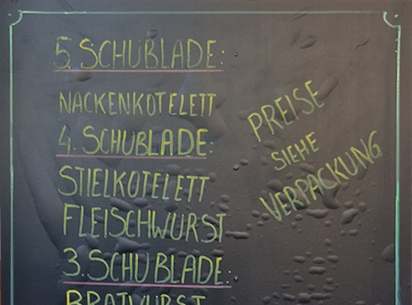 5. SCHUBLADE:
NACKENKOTELETT
4. SCHUBLADE:
STIELKOTELETT
FLEISCHWURST
3. SCHUBLADE:
BRATWURST
PREISE
SIEHE
VERPACKUNG